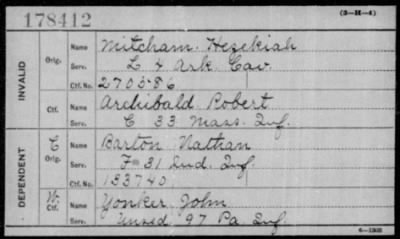 178412
(3-H-4)
INVALID
Orig.
Name Mitcham. Hezekiah
Serv. L 4 Ark. Cav.
Ctf. No. 270586
Ctf.
Name Archibald Robert
Serv. C 33 Mass. Inf.
DEPENDENT
C
Orig.
Name Barton Nathan
Serv. F 31 Ind. Inf.
Ctf. No. 133740
W.
Ctf.
Name Yonker, John
Serv. Unsed 97 Pa Inf.